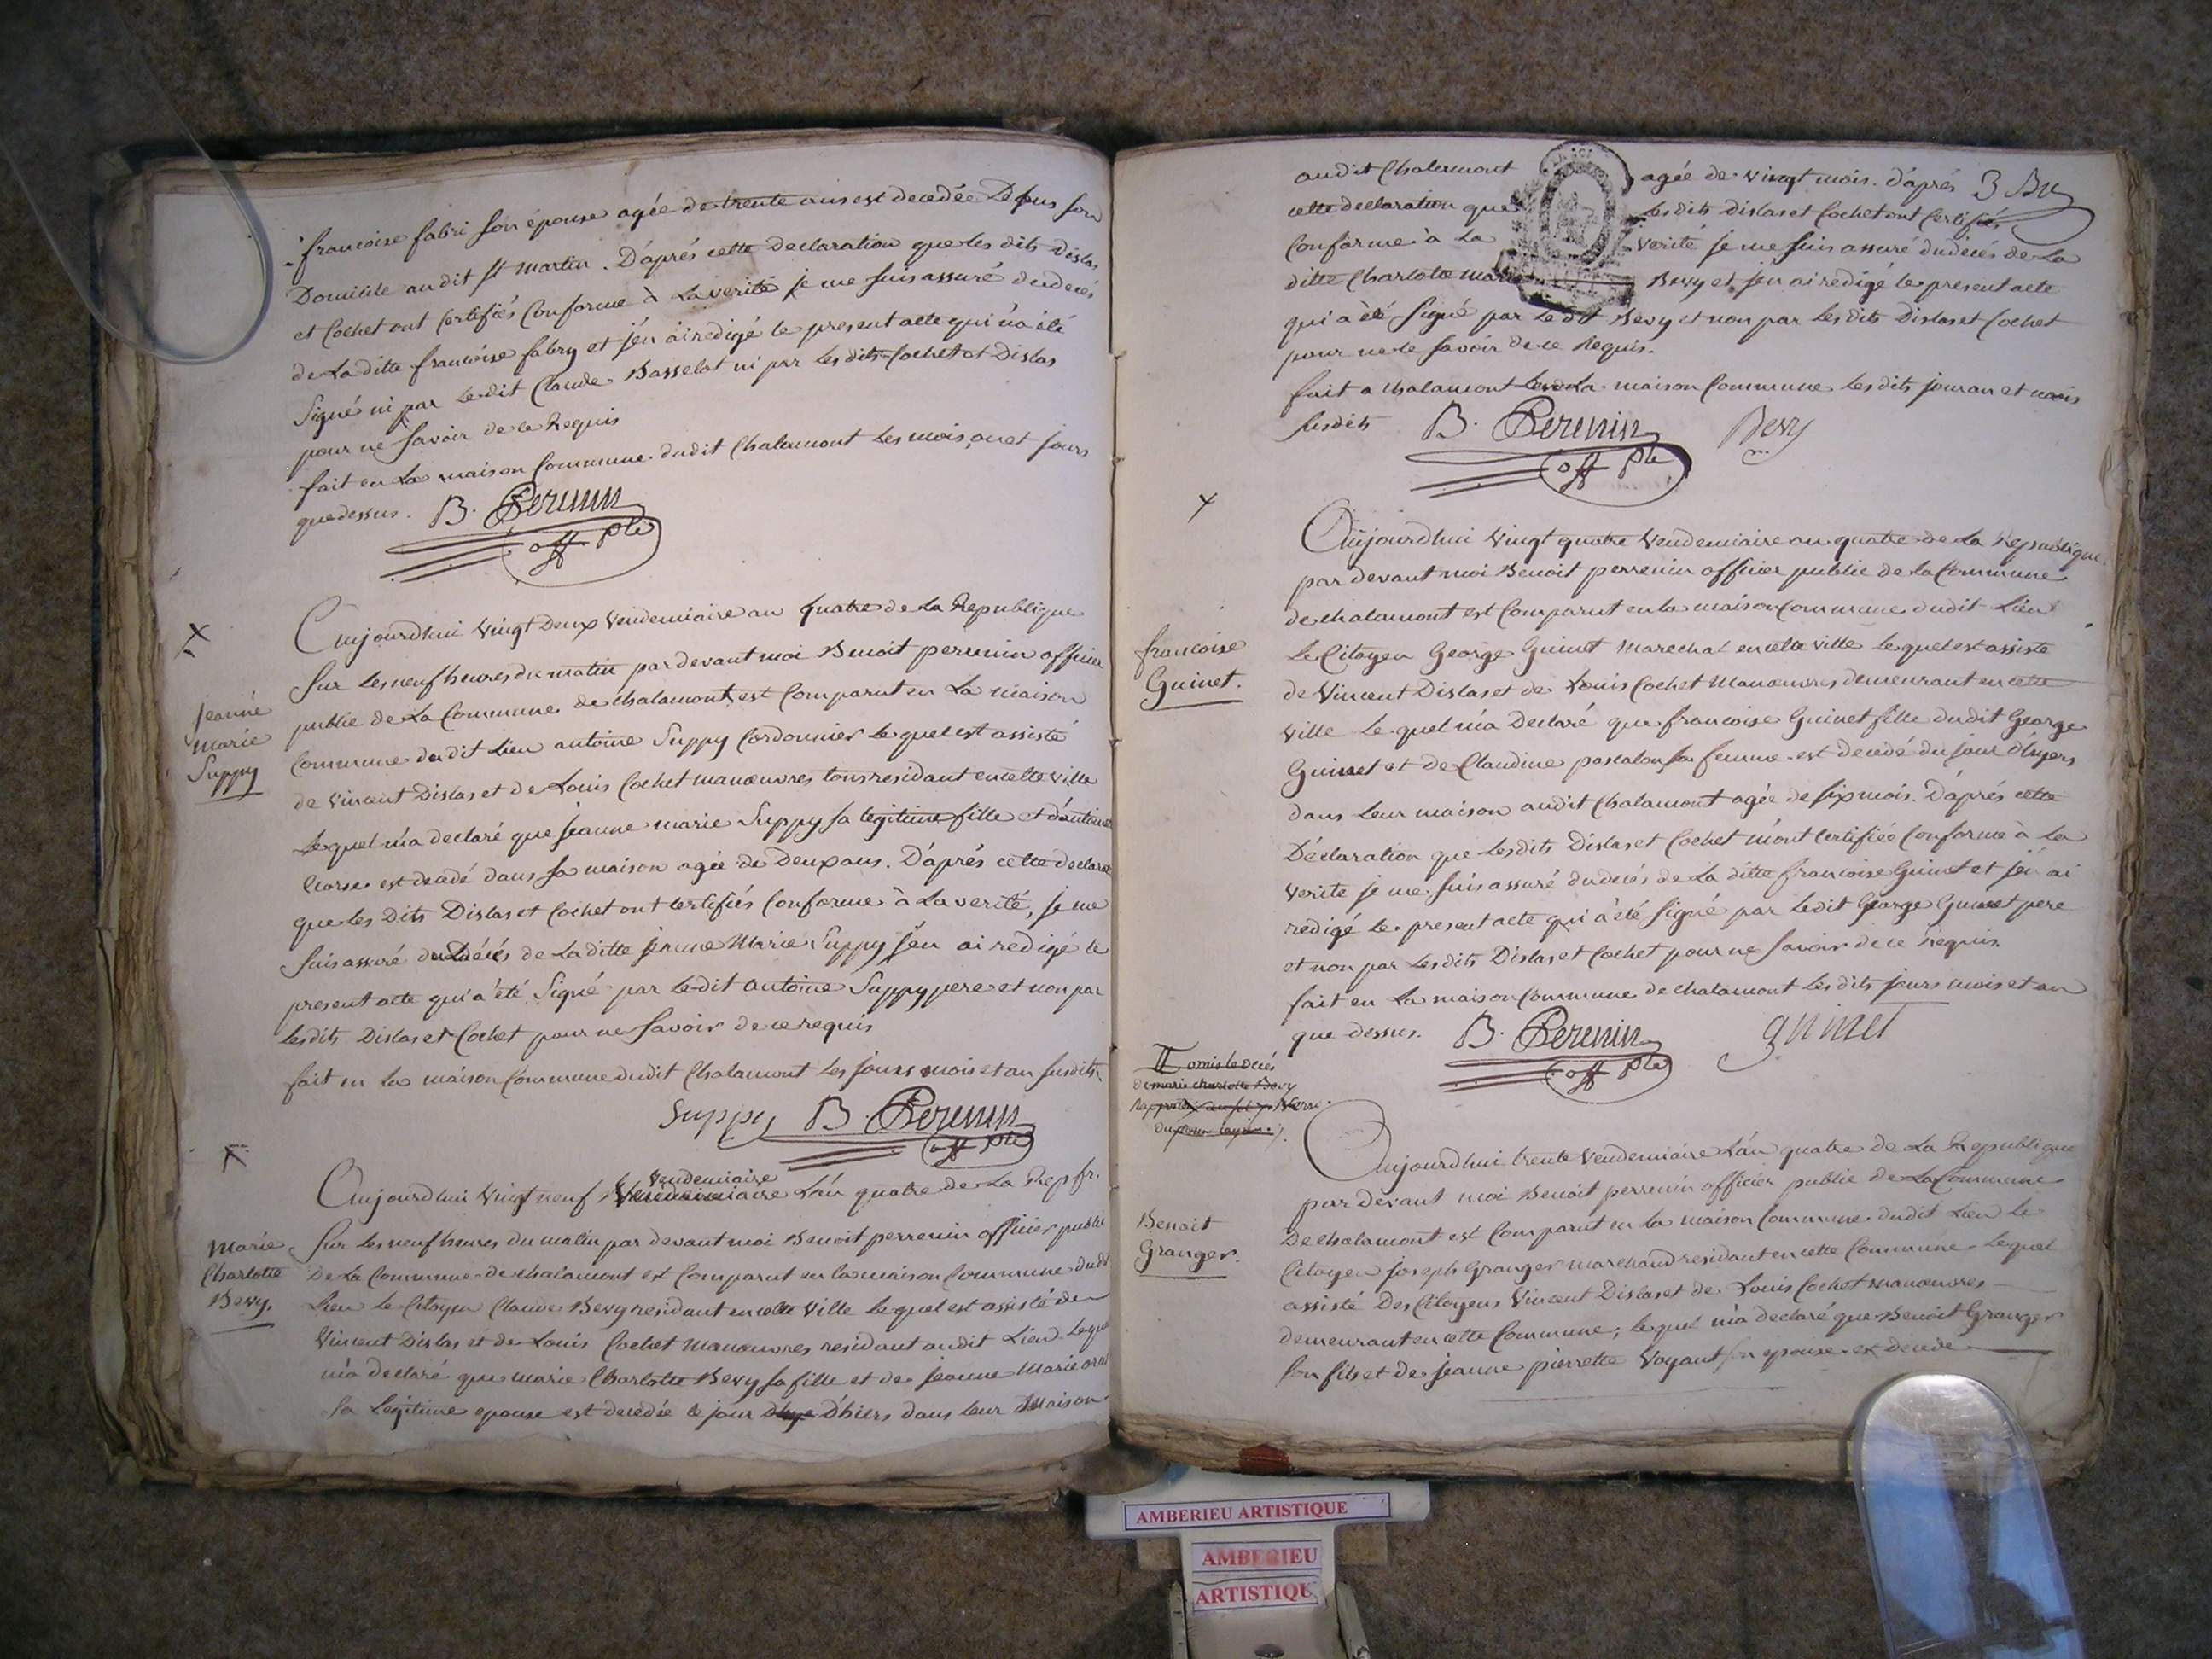 francoise fabri son épouse agée de trente ans est decedée Depuis son
Domicile au dit st martin. D'aprés cette Declaration que les dits Dislas
et Cochet ont Certifiés Conforme à La verité je me suis assuré du decés
de La ditte francoise fabry et j'en ai redigé le present acte qui n'a été
Signé ni par Le dit Claude Basselat ni par Les dits Cochet et Dislas
pour ne Savoir de ce Requis
fait en La maison Commune du dit Chalamont Les mois, an et jours
que dessus. B. Perenin
off. ple
Jeanne
marie
Suppy
Aujourdhui vingt Deux Vendemiaire an quatre de La Republique
Sur Les neuf heures du matin par devant moi Benoit perrenin officier
public de La Commune de chalamont, est Comparut en La maison
Commune du dit Lieu antoine Suppy Cordonnier Le quel est assisté
de Vincent Dislas et de Louis Cochet manœuvres tous residant en cette ville
Le quel m'a declaré que jeanne marie Suppy sa legitime fille et
est decedé dans sa maison agée de Deux ans. D'aprés cette declaration
que Les Dits Dislas et Cochet ont Certifiés Conforme à La verité, je me
Suis assuré du Décés de La ditte jeanne Marie Suppy j'en ai redigé le
present acte qui a été Signé par Le dit antoine Suppy pere et non par
Les dits Dislas et Cochet pour ne Savoir de ce requis
fait en La maison Commune du dit Chalamont Les jours mois et an Susdits
Suppy B. Perenin
off. ple
Marie
Charlotte
Bevy.
Aujourdhui vingt neuf Vendemiaire L'an quatre de La Rep fr.
Sur Les neuf heures du matin par devant moi Benoit perrenin officier public
De La Commune de chalamont est Comparut en La maison Commune du dit
Lieu Le Citoyen Claude Bevy residant en cette Ville Le quel est assisté de
Vincent Dislas et de Louis Cochet Manœuvres residant au dit Lieu Le quel
m'a declaré que marie Charlotte Bevy sa fille et de jeanne Marie
sa Légitime epouse est decedée le jour D'hiers dans Leur Maison
au dit Chalamont agée de vingt mois. d'aprés
cette declaration que Les dits Dislas et Cochet ont Certifiés
Conforme à La verité je me suis assuré du decés de La
ditte Charlotte marie Bevy et j'en ai redigé le present acte
qui a été Signé par Le dit Bevy et non par Les dits Dislas et Cochet
pour ne le Savoir de ce Requis.
fait a chalamont La maison Commune Les dits jour an et mois
Susdits B. Perenin Bevy
off. ple
francoise
Guinet.
Aujourdhui vingt quatre Vendemiaire an quatre de La Republique
par devant moi Benoit perrenin officier public de La Commune
de chalamont est Comparut en la maison commune du dit Lieu
Le Citoyen George Guinet Marechal en cette ville Le quel est assisté
de Vincent Dislas et de Louis Cochet Manœuvres demeurant en cette
ville Le quel m'a Declaré que francoise Guinet fille du dit George
Guinet et de Claudine pascalon sa femme est decedé du jour d'hyers
dans Leur maison au dit Chalamont agée de six mois. D'aprés cette
Déclaration que Les dits Dislas et Cochet m'ont Certifiée Conforme à La
verite je me suis assuré du decés de La ditte francoise Guinet et j'en ai
redigé le present acte qui a été signé par Le dit George Guinet pere
et non par Les dits Dislas et Cochet pour ne Savoir de ce Requis
fait en La maison Commune de chalamont Les dits jours mois et an
que dessus. B. Perenin guinet
off. ple
omis le decés
de marie charlotte Bevy
Benoit
Granger.
Aujourdhui trente Vendemiaire L'an quatre de La Republique
par devant moi Benoit perrenin officier public de La Commune
De chalamont est Comparut en la maison Commune du dit Lieu le
Citoyen joseph Granger marchand residant en cette Commune Le quel
assisté Des Citoyens Vincent Dislas et de Louis Cochet manœuvres
demeurant en cette Commune; Le quel m'a declaré que Benoit Granger
Son fils et de jeanne pierrette Voyant son epouse est decedé
AMBERIEU ARTISTIQUE
AMBERIEU
ARTISTIQUE